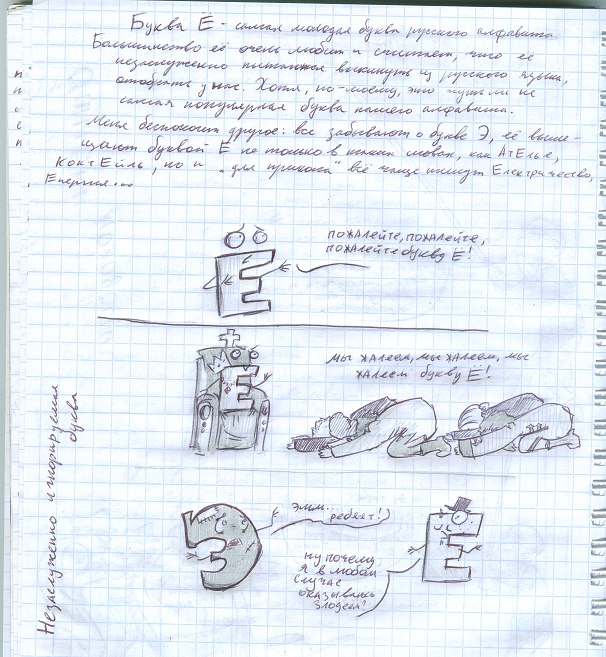 Буква Ё - самая молодая буква русского алфавита.
Большинство её очень любит и считает, что её
незаслуженно пытаются выкинуть из русского языка,
отобрать у нас. Хотя, по-моему, это чуть ли не
самая популярная буква нашего алфавита.
Меня беспокоит другое: все забывают о букве Э, её выме-
щают буквой Е не только в таких словах, как АтЕлье,
КоктЕйль, но и „для прикола" всё чаще пишут Електричество,
Енергия...
пожалейте, пожалейте,
пожалейте букву Ё!
Мы жалеем, мы жалеем, мы
жалеем букву Ё!
Эмм...
ребяят!
ну почему
я в любом
случае
оказываюсь
злодеем?
Незаслуженно игнорируемая
буква